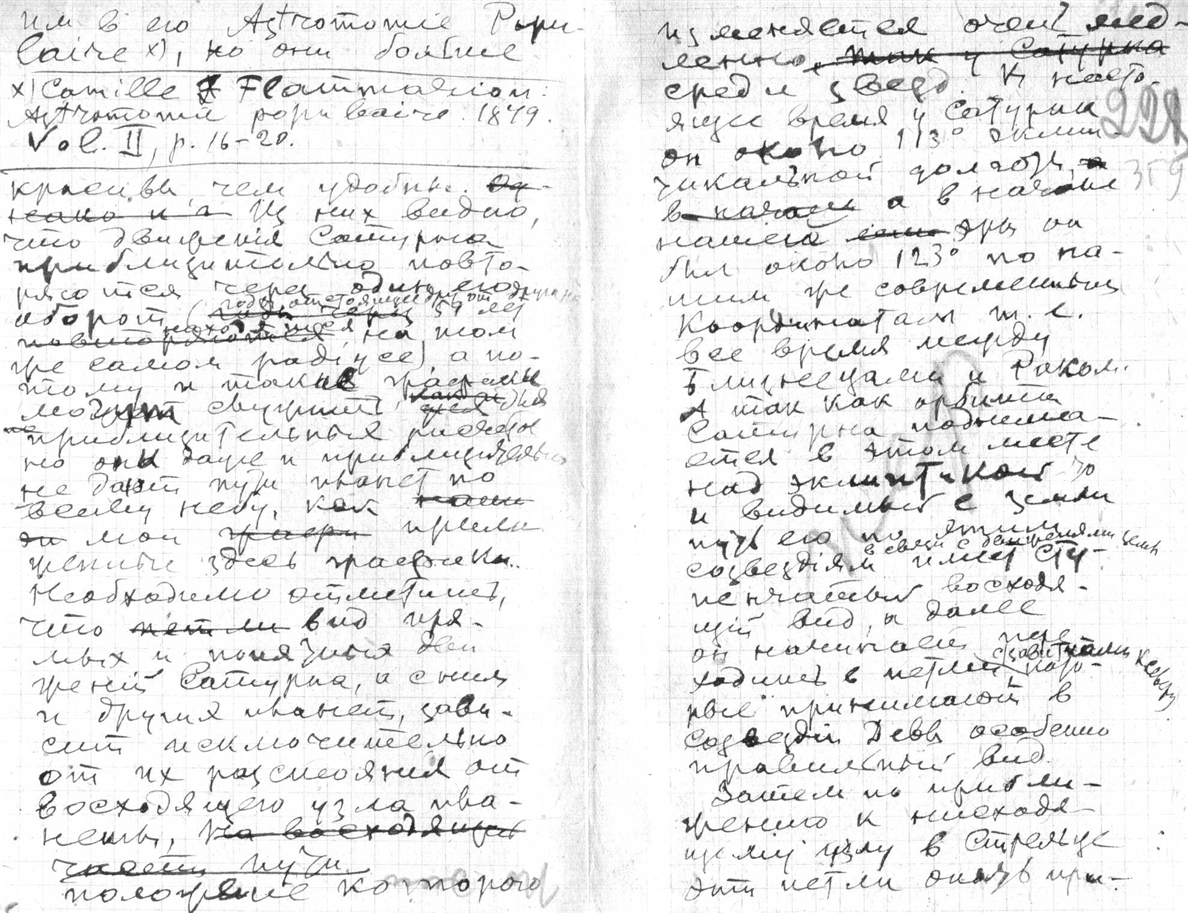 им в его Astronomie Popu-
laire x), но они более
x) Camille Flammarion:
Astronomie populaire. 1879.
Vol. II, p. 16-28.
красивы, чем удобны. Од-
нако и Из них видно,
что движения Сатурна
приблизительно повто-
ряются через один его
оборот (годы отстоящие от друга на 59 лет
находящиеся на том
же самом радиусе), а по-
тому и такие графики
могут служить для
приблизительных расчетов
но они даже и приблизительно
не дают пути планет по
всему небу, как
мои прило
женные здесь графики.
Необходимо отметить,
что вид пря-
мых и попятных дви
жений Сатурна, а с ним
и других планет, зави-
сит исключительно
от их расстояния от
восходящего узла пла-
неты, на восходящую
часть пути
положение которого
изменяется очень мед-
ленно, так у Сатурна
среди звезд. В насто-
ящее время у Сатурна
он около 113° эклип-
тикальной долготы,
в начале а в начале
нашей эры он
был около 123° по на-
шим же современным
координатам т. е.
все время между
Близнецами и Раком.
А так как орбита
Сатурна поднима-
ется в этом месте
над эклиптикой то
и видимый с земли
путь его по этим
в связи с движениями земли
созвездиям имеет сту-
пенчатый восходя-
щий вид, а далее
он начинает пере
ходить в петли, кото-
рые принимают в
созвездии Девы особенно
правильный вид.
Затем по прибли-
жению к нисходя-
щему узлу в Стрельце
эти петли опять при-
228
359